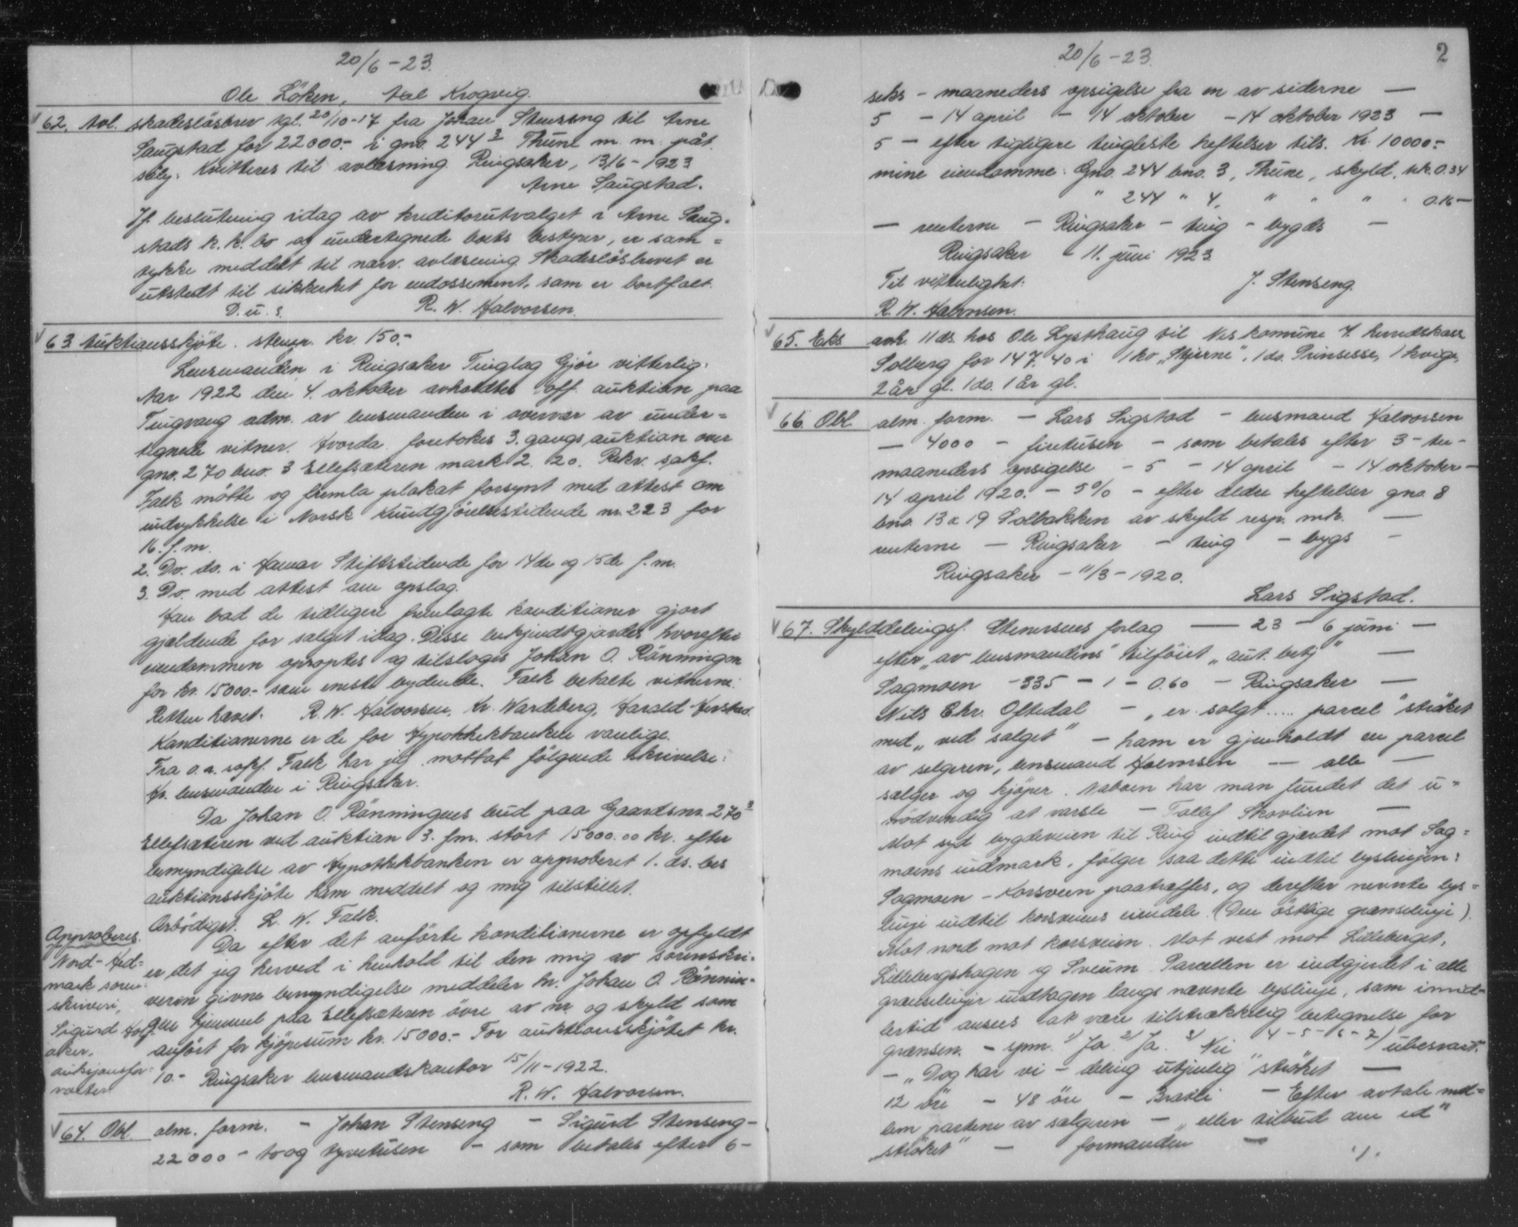 20/6 - 23.
Ole Löken, Axel Krogvig
62. Avl. skadeslösbrev tgl. 20/10-17 fra Johan Stenseng til Arne
Saugstad for 22000.- i gno. 244³ Thune m. m. påt.
såly. Kvitteres til avlæsning Ringsaker, 13/6 - 1923
Arne Saugstad.
Jf. beslutning idag av kreditorutvalget i Arne Saug-
stads k. k. bo og undertegnede boets bestyrer, er sam-
tykke meddelt til nærv. avlæsning Skadeslösbrevet er
utstedt til sikkerhet for endossement, som er bortfalt.
D. u. s. R. W. Halvorsen.
63 Auktionsskjöte. stempr. kr. 150.-
Lensmanden i Ringsaker Tinglag Gjör vitterlig:
Aar 1922 den 4. oktober avholdtes off. auktion paa
Tingvang adm. av lensmanden i overvær av under-
tegnede vitner. Hvorda foretokes 3. gangs auktion over
gno. 270 bno. 3 Ellefsæteren mark 2. 20. Rekv. sakf.
Falk mötte og fremla plakat forsynt med attest om
indrykkelse i Norsk Kundgjörelsestidende nr. 223 for
16. f. m.
2. Do. do. i Hamar Stiftstidende for 14de og 15de f. m.
3. Do. med attest om opslag.
Han bad de tidligere fremlagte konditioner gjort
gjældende for salget idag. Disse bekjendtgjordes hvorefter
eiendommen opraptes og tilsloges Johan O. Rönningen
for kr. 15000.- som eneste bydende. Falk betalte vitnerne.
Retten hævet. R. W. Halvorsen, Kr. Wardeberg, Harald Herstad.
Konditionerne er de for Hypothekbanken vanlige.
Fra o. r. sakf. Falk har jeg mottat fölgende skrivelse:
Hr. lensmanden i Ringsaker.
Da Johan O. Rönningens bud paa Gaardsnr. 270³
Ellefsæteren ved auktion 3. fm. stort 15000.00 kr. efter
bemyndigelse av Hypothekbanken er approberet 1. ds. bes
auktionsskjöte ham meddelt og mig tilstillet.
Ærbödigst. L. W. Falk.
Da efter det anförte konditionerne er opfyldt
er det jeg herved i henhold til den mig av sorenskri-
veren givne bemyndigelse meddeler hr. Johan O. Rönnin-
gen hjemmel paa Ellefsæteren övre av nr. og skyld som
anfört for kjöpesum kr. 15000.- For auktionsskjötet kr.
10.- Ringsaker lensmandskontor 15/11-1922.
R. W. Halvorsen.
Approberes.
Nord-Hed-
mark soren-
skriveri,
Sigurd Hof-
aker.
auksjonsfor-
valter
64. Obl. alm. form. - Johan Stenseng - Sigurd Stenseng -
22000 - toog tyvetusen - som betales efter 6 -
20/6 - 23. 2
seks - maaneders opsigelse fra en av siderne -
5 - 14 april - 14 oktober - 14 oktober 1923 -
5 - efter tidligere tingleste heftelser tils. Kr. 10000.-
mine eiendomme: Gno. 244 bno. 3, Thune, skyld. mk. 0.34
" 244 " 4, " " " " 0.16 -
- renterne - Ringsaker - ting - bygds -
Ringsaker 11. juni 1923.
Til vitterlighet: J. Stenseng.
R. W. Halvorsen.
65. Eks avh. 11 ds. hos Ole Lysthaug til Nes komune v. herredskass
Solberg for 147. 40 i 1 ko "Stjerne", 1 do. Prinsesse, 1 kvige
2 år gl. 1 do. 1 år gl.
66. Obl alm. form. - Lars Sigstad - lensmand Halvorsen
- 4000 - firetusen - som betales efter 3 - tre -
maaneders opsigelse - 5 - 14 april - 14 oktober -
14 april 1920. - 5% - efter ældre heftelser gno. 8
bno. 13 & 19 Solbakken av skyld resp. mk. -
renterne - Ringsaker - ting - bygs -
Ringsaker - 11/3 - 1920.
Lars Sigstad.
67. Skylddelingsf. Steenersens forlag - 23 - 6 juni -
efter "av lensmandens" tilföiet "aut. betj" -
Sagmoen - 335 - 1 - 0.60 - Ringsaker -
Nils Chr. Oftedal - "er solgt .... parcel" ströket
med "ved salget" - ham er gjenholdt en parcel
av selgeren, lensmand Halvorsen - alle -
sælger og kjöper. Naboen har man fundet det u-
nödvendig at varsle - Tollef Skovlien -
Mot syd bygdeveien til Ring indtil gjerdet mot Sag-
moens indmark, fölger saa dette indtil byslinjen:
Sagmoen - Korsveien paatræffes, og derefter nevnte bys-
linje indtil korsveiens eiendele. (Den östlige grænselinje).
Mot nord mot korsveien. Mot vest mot Lilleberget,
Lillebergshagen og Sveum. Parcellen er indgjerdet i alle
grænselinjer undtagen langs nævnte byslinje, som imid-
lertid ansees at være tilstrækkelig betegnelse for
grænsen. - spm. 1) Ja 2) Ja 3) Nei 4 - 5 - 6 - 7) ubesvart.
- "Dog har vi - deling utjenlig" ströket -
12 öre - 48 öre - Braali - Efter avtale mel-
lem partene av salgeren - "eller tilbud om ed"
ströket" - formanden -
./.